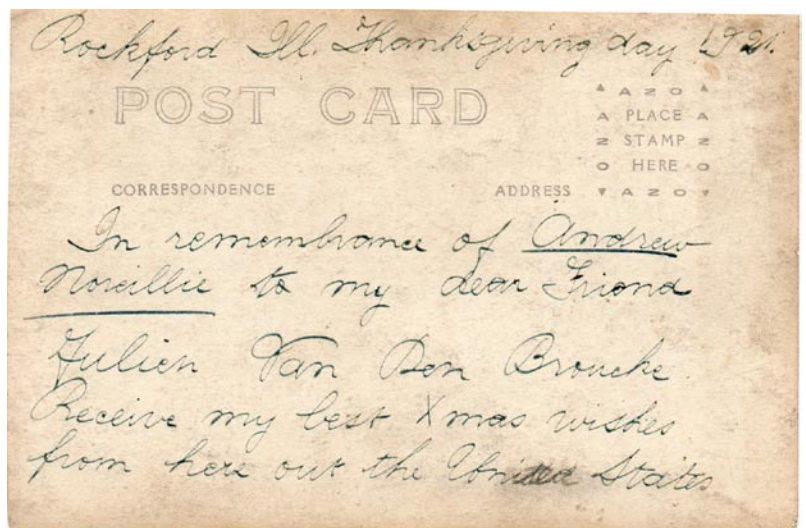 Rockford Ill. Thanksgiving day 1921.
POST CARD
▲ A Z O ▲
A PLACE A
Z STAMP Z
O HERE O
▼ A Z O ▼
CORRESPONDENCE ADDRESS
In remembrance of Andrew
Noreillie to my dear Friend
Julien Van Den Broucke
Receive my best Xmas wishes
from here out the United States